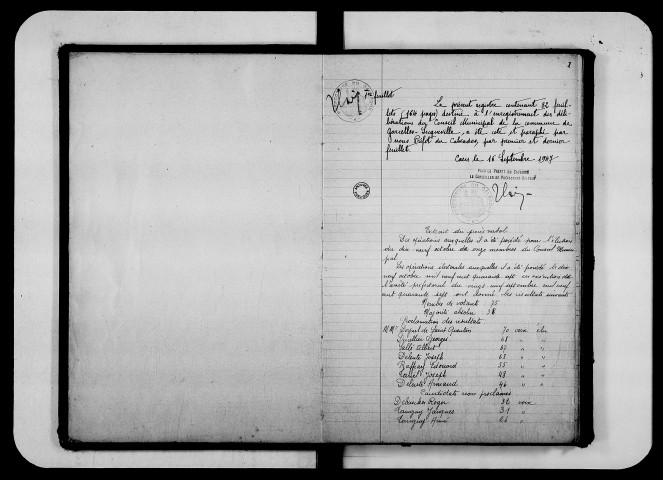 1
1er feuillet
Le présent registre contenant 82 feuil-
lets (164 pages) destiné à l'enregistrement des déli-
bérations du Conseil Municipal de la commune de
Garcelles-Secqueville, a été coté et paraphé par
nous Préfet du Calvados, par premier et dernier
feuillet.
Caen le 16 Septembre 1947
POUR LE PRÉFET DU CALVADOS
LE CONSEILLER DE PRÉFECTURE DÉLÉGUÉ
Extrait du procès verbal
Des opérations auxquelles il a été procédé pour l'élection
du dix neuf octobre de onze membres du Conseil Munici
pal
Les opérations électorales auxquelles il a été procédé le dix
neuf octobre mil neuf cent quarante sept en exécution de
l'arrêté préfectoral du vingt neuf septembre mil neuf
cent quarante sept ont donné les résultats suivants
Nombre de votants : 75
Majorité absolue : 38
Proclamation des résultats
MMrs de Saint Quentin 70 voix élu
Georges 68 " "
Albert 67 " "
Joseph 63 " "
Raffray Edouard 55 " "
Joseph 48 " "
Armand 46 " "
Candidats non proclamés
Roger 32 voix
Jacques 31 "